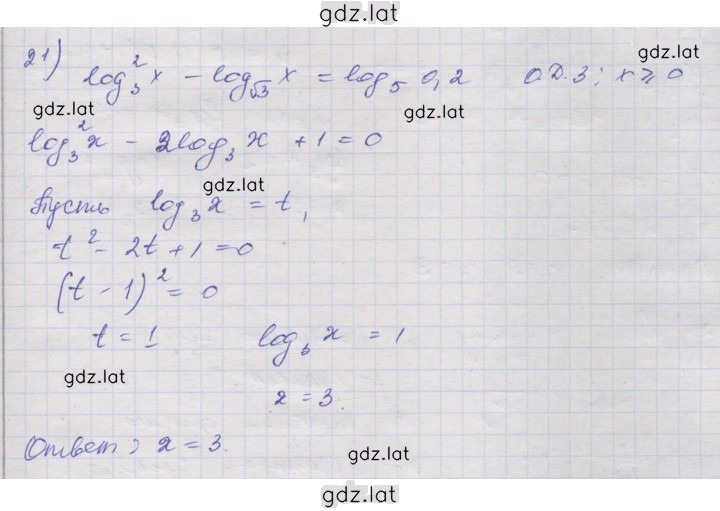 gdz.lat
21)
log₃²x - log_√3 x = log₅ 0,2 О.Д.З; x ⩾ 0
gdz.lat
gdz.lat
gdz.lat
log₃²x - 2log₃x + 1 = 0
gdz.lat
Пусть log₃x = t,
t² - 2t + 1 = 0
(t - 1)² = 0
t = 1 log₃x = 1
gdz.lat
x = 3.
gdz.lat
Ответ: x = 3.
gdz.lat
gdz.lat